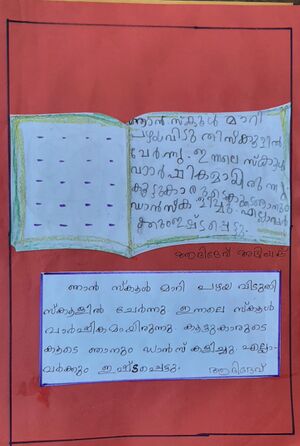 ഞാൻ സ്കൂൾ മാറി
പഴയവിടു തി സ്കൂളിൽ
ചേർന്നു. ഇന്നലെ സ്കൂൾ
വാർഷികമായിരുന്നു
കൂട്ടുകാരുടെകൂടെഞാനും
ഡാൻസ് കളിച്ചു. എല്ലാവർ
ക്കുംഇഷ്ടപ്പെട്ടു.
ആദിദേവ്
ഞാൻ സ്കൂൾ മാറി പഴയ വിടുതി
സ്കൂളിൽ ചേർന്നു ഇന്നലെ സ്കൂൾ
വാർഷികമായിരുന്നു കൂട്ടുകാരുടെ
കൂടെ ഞാനും ഡാൻസ് കളിച്ചു എല്ലാ-
വർക്കും ഇഷ്ടപ്പെട്ടു. ആദിദേവ്